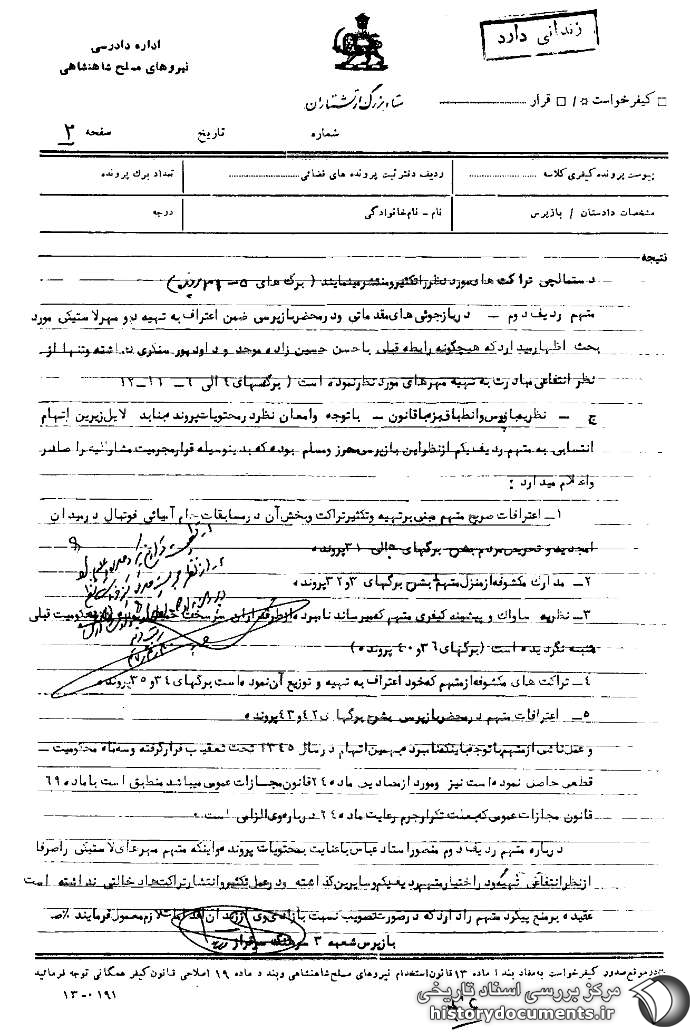 زندانی دارد
اداره دادرسی
نیروهای مسلح شاهنشاهی
ستاد بزرگ ارتشتاران
□ کیفرخواست ¤/ □ قرار
شماره تاریخ صفحه ۲
پیوست پرونده کیفری کلاسه ردیف دفتر ثبت پرونده های قضائی تعداد برگ پرونده
مشخصات دادستان / بازپرس نام - نام خانوادگی درجه
نتیجه
دستمالچی تراکت های مورد نظر را تکثیر و منتشر مینمایند ( برگ های ۵ - ۳۱ پرونده )
متهم ردیف دوم - در بازجوئی های مقدماتی و در محضر بازپرسی ضمن اعتراف به تهیه دو مهر لاستیکی مورد
بحث اظهار میدارد که هیچگونه رابطه قبلی با حسن حسین زاده موحد و داود پور سنگری نداشته و تنها از
نظر انتفاعی مبادرت به تهیه مهرهای مورد نظر نموده است ( برگهای ۴ الی ۶ - ۱۱ - ۱۲
ج - نظریه بازپرس و انطباق بزه با قانون - با توجه و امعان نظر در محتویات پرونده بنا بدلایل زیرین اتهام
انتسابی به متهم ردیف یکم از نظر این بازپرسی محرز و مسلم بوده که بدینوسیله قرار مجرمیت مشارالیه را صادر
و اعلام میدارد :
۱- اعترافات صریح متهم مبنی بر تهیه و تکثیر تراکت و پخش آن در مسابقات جام آسیائی فوتبال در میدان
امجدیه و تحریص مردم بشرح برگهای الی ۳۱ پرونده
۲- مدارک مکشوفه از منزل متهم بشرح برگهای ۳ و ۳۲ پرونده
۳- نظریه ساواک و پیشینه کیفری متهم که میرساند نامبرده از طرفداران سرسخت محکومیت قبلی
متنبه نگردیده است (برگهای ۳۶ و ۴۰ پرونده)
۴- تراکت های مکشوفه از متهم که خود اعتراف به تهیه و توزیع آن نموده است برگهای ۳۴ و ۳۵ پرونده
۵- اعترافات متهم در محضر بازپرسی بشرح برگهای ۴۲ و ۴۳ پرونده
و عمل ناشی از متهم با توجه باینکه نامبرده بهمین اتهام در سال ۱۳۴۵ تحت تعقیب قرار گرفته و سه ماه محکومیت -
قطعی حاصل نموده است نیز و مورد از مصادیق ماده ۲۴ قانون مجازات عمومی میباشد منطبق است با ماده ۶۹
قانون مجازات عمومی که بعلت تکرار جرم رعایت ماده ۲۴ درباره وی الزامی است .
درباره متهم ردیف دوم منصور استاد عباس با عنایت بمحتویات پرونده و اینکه متهم مهرهای لاستیکی را صرفا
از نظر انتفاعی تهیه و در اختیار متهم ردیف یکم و سایرین گذاشته و در عمل تکثیر و انتشار تراکت ها دخالتی نداشته است
عقیده بر منع پیگرد متهم را دارد که در صورت تصویب نسبت به آزادی وی اقدامات لازم معمول فرمایند
بازپرس شعبه ۳ سرهنگ سرفراز
در موقع صدور کیفرخواست به مفاد بند ۱ ماده ۹۳ قانون استخدام نیروهای مسلح شاهنشاهی و بند د ماده ۱۹ اصلاحی قانون کیفر همگانی توجه فرمائید
۱۳-۰۱۹۱
مرکز بررسی اسناد تاریخی
historydocuments.ir